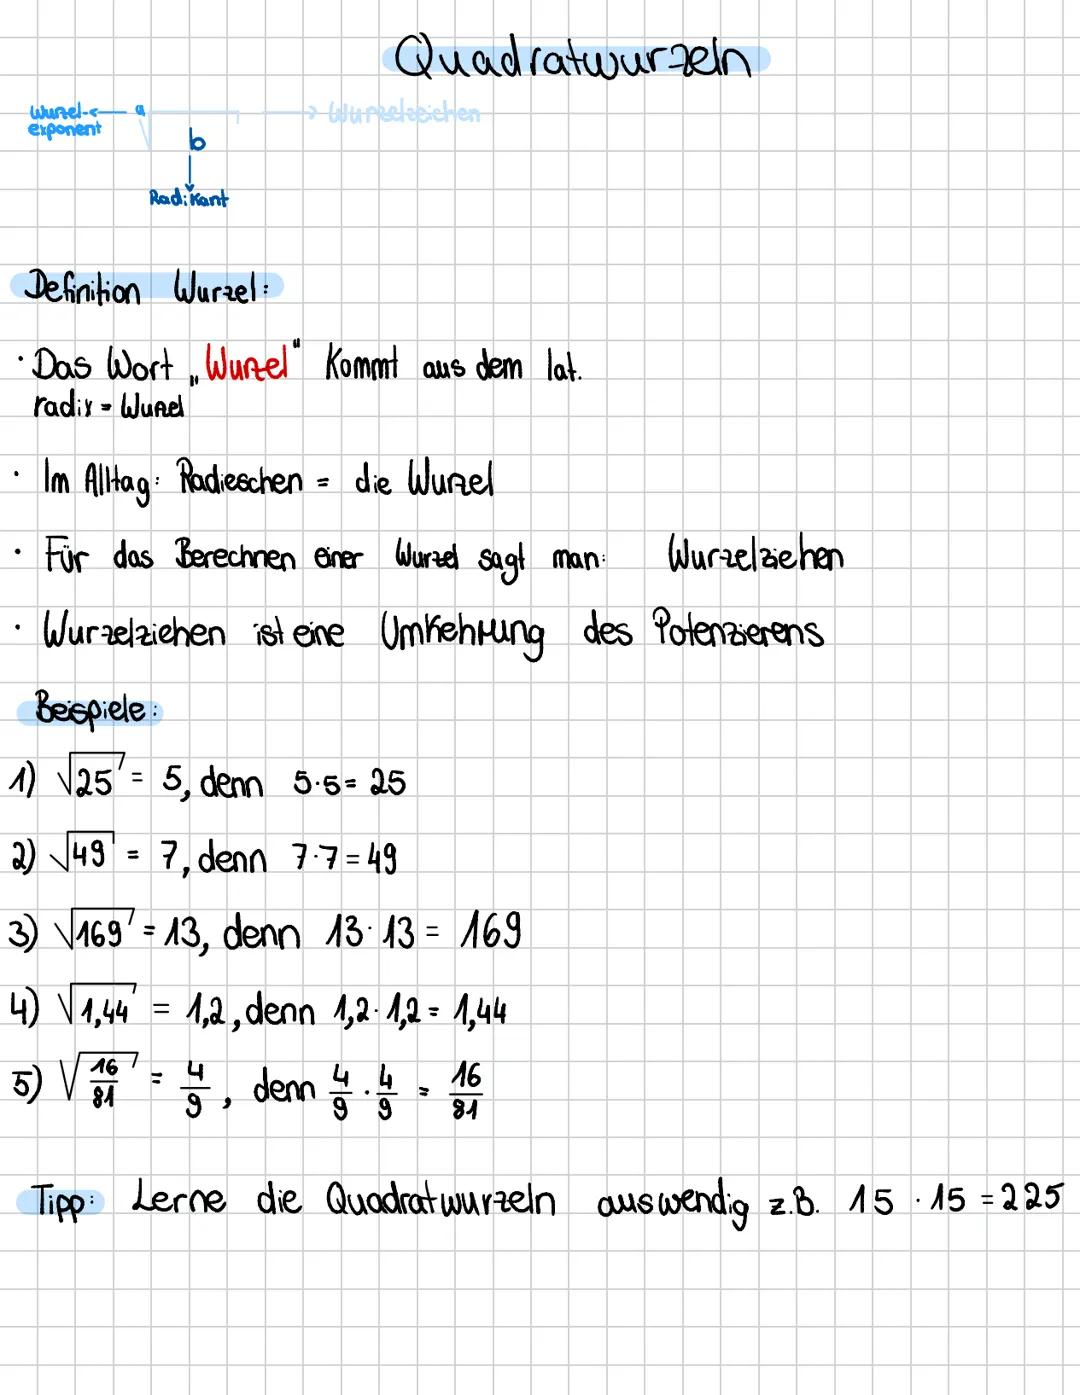 Quadratwurzeln
Wurzel- ← a → Wurzelzeichen
exponent
b
↓
Radikant
Definition Wurzel:
· Das Wort „Wurzel" kommt aus dem lat.
radix = Wurzel
· Im Alltag: Radieschen = die Wurzel
· Für das Berechnen einer Wurzel sagt man: Wurzelziehen
· Wurzelziehen ist eine Umkehrung des Potenzierens
Beispiele:
1) √25 = 5, denn 5·5 = 25
2) √49 = 7, denn 7·7 = 49
3) √169 = 13, denn 13·13 = 169
4) √1,44 = 1,2, denn 1,2·1,2 = 1,44
5) √16/81 = 4/9, denn 4/9 · 4/9 = 16/81
Tipp: Lerne die Quadratwurzeln auswendig z.B. 15 · 15 = 225